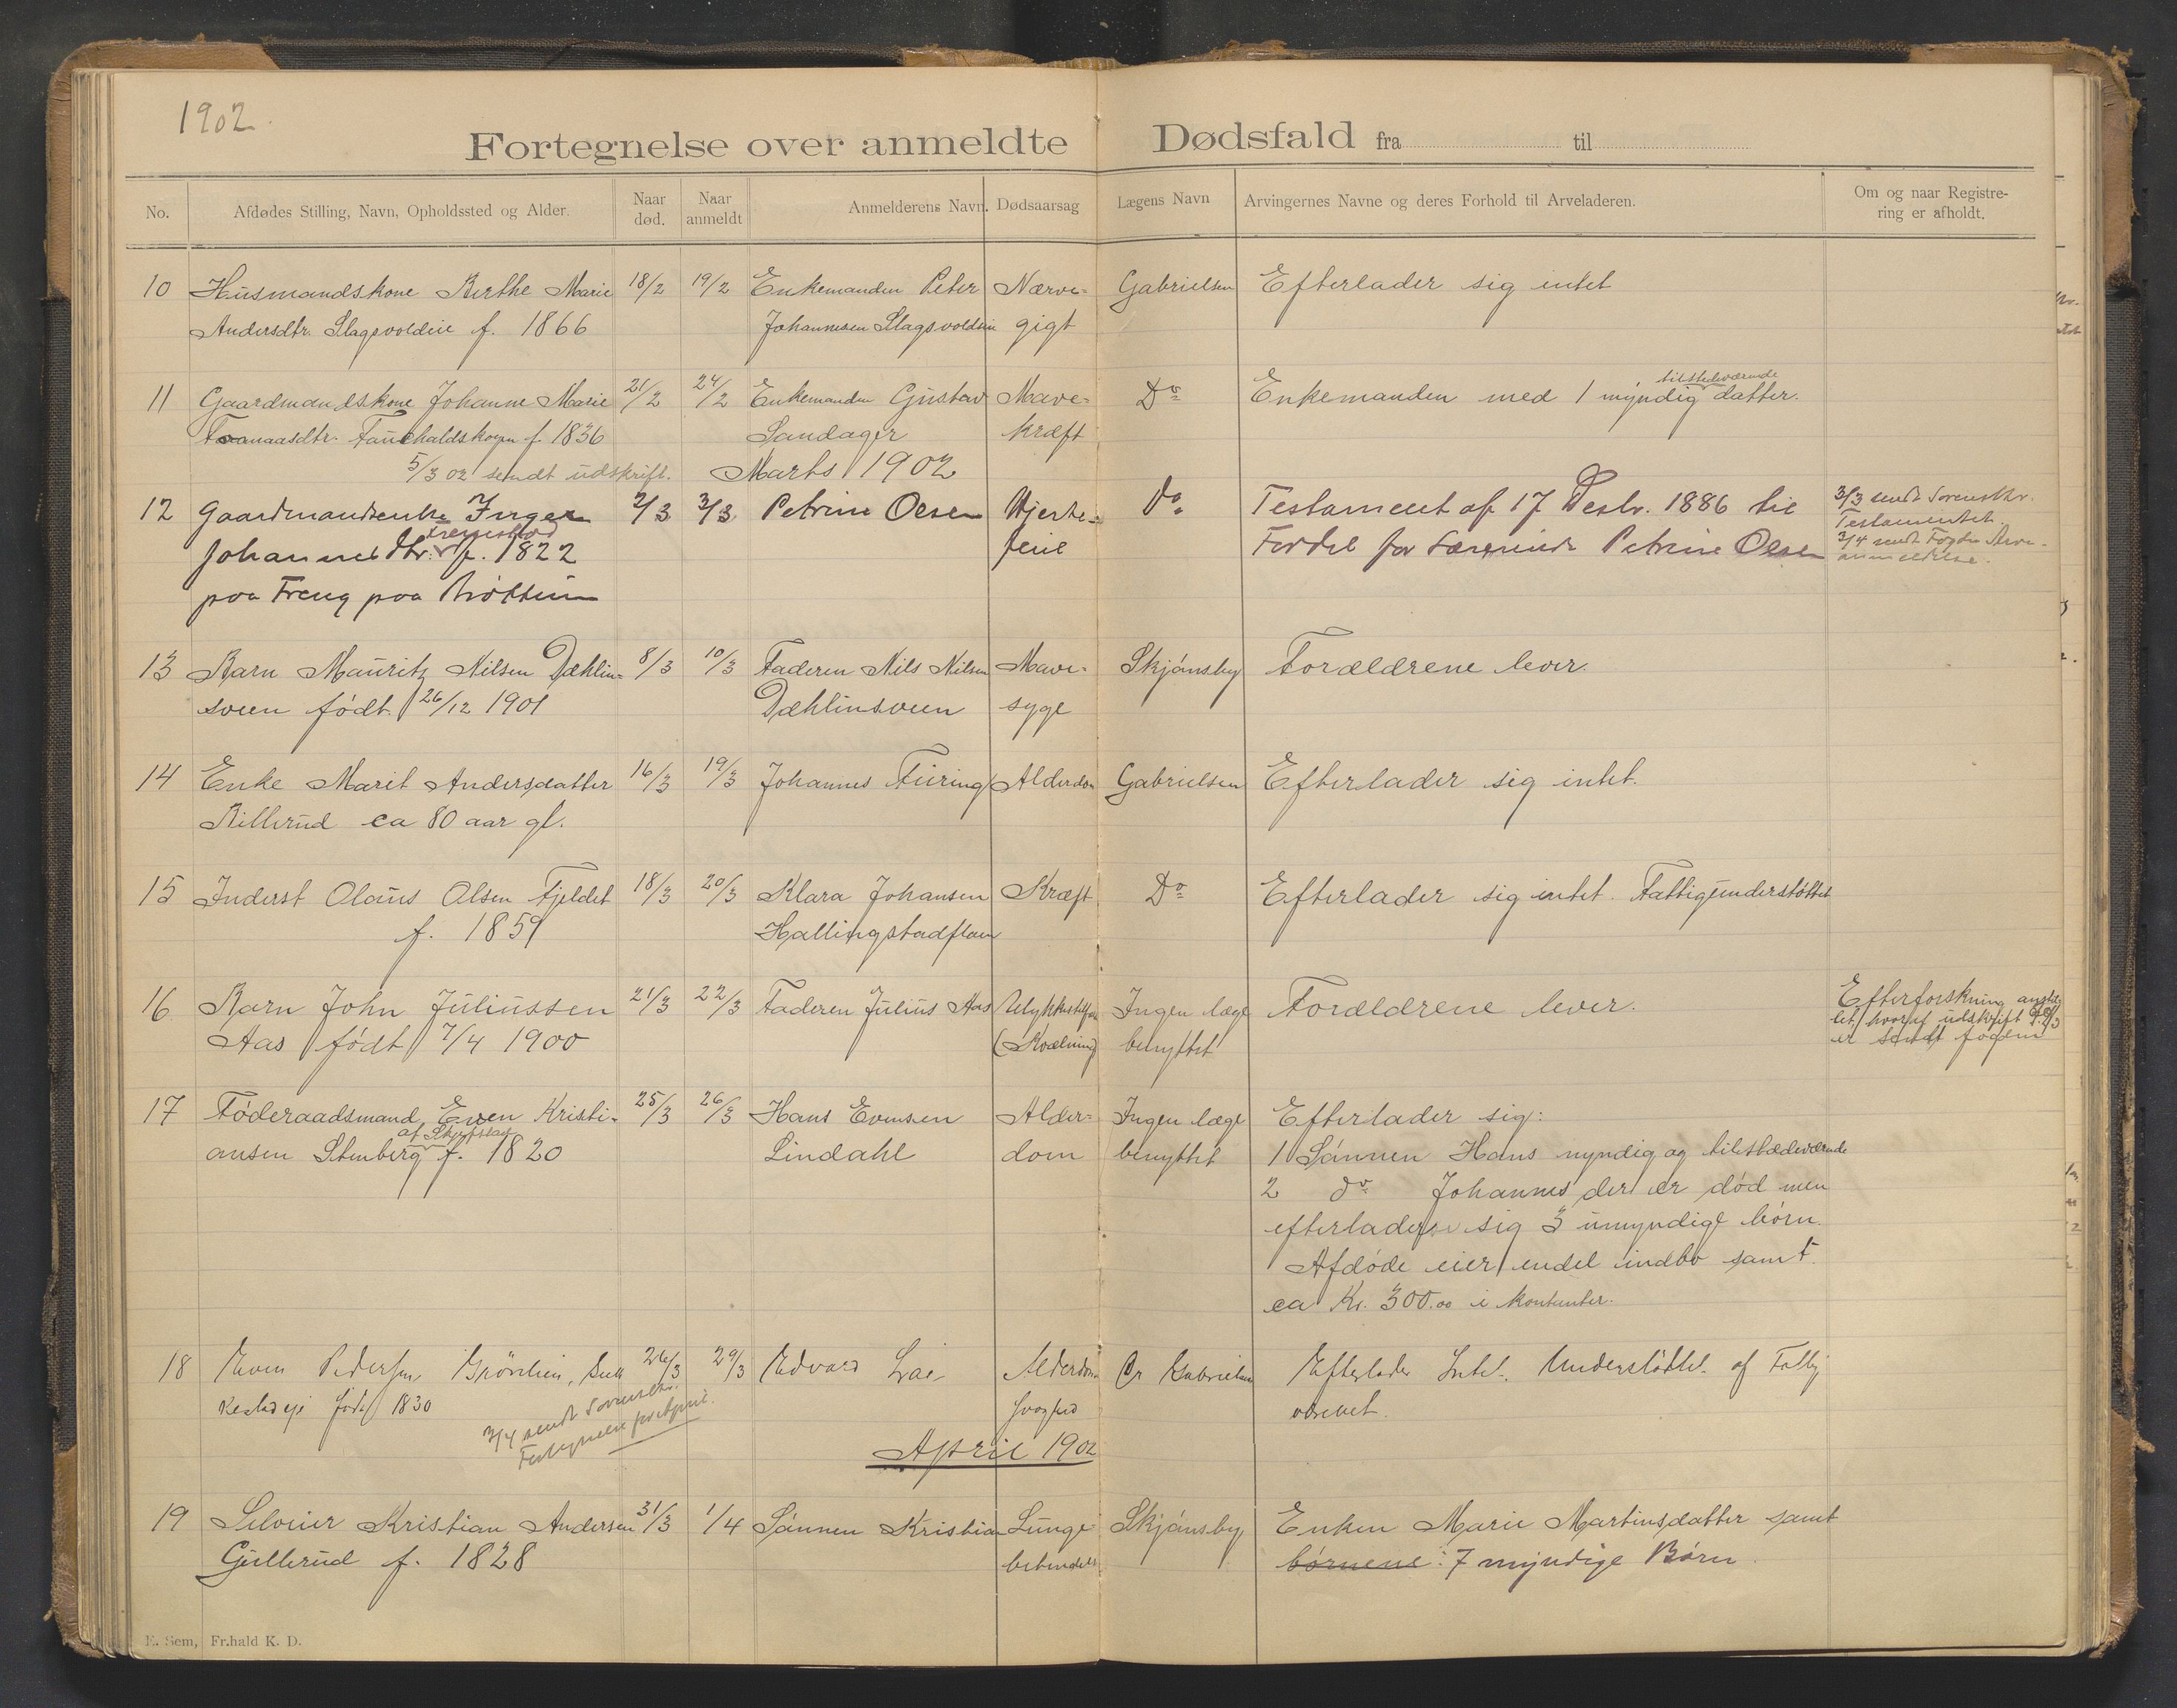 1902.
Fortegnelse over anmeldte Dødsfald fra til
No. Afdødes Stilling, Navn, Opholdssted og Alder. Naar død. Naar anmeldt Anmelderens Navn. Dødsaarsag Lægens Navn Arvingernes Navne og deres Forhold til Arveladeren. Om og naar Registrering er afholdt.
10 Husmandskone Berthe Marie 18/2 19/2 Enkemanden Peter Nærve- Gabrielsen Efterlader sig intet
Andersdtr. Slagsvoldeie f. 1866 Johannesen Slagsvoldeie gigt
tilstedeværende
11 Gaardmandskone Johanne Marie 21/2 24/2 Enkemanden Gustav Mave- Do Enkemanden med 1 myndig datter.
f. 1836 Sandager kræft
5/3 02 sendt udskrift. Marts 1902
12 Gaardmandsenke Inger 2/3 3/3 Petrine Olsen Hjerte- Do Testament af 17 Desbr. 1886 til 3/3 sendt Sorenskr.
Johannesdtr. f. 1822 feil Fordel for Petrine Olsen Testamentet.
paa Freng paa 3/4 sendt Fogden Arve-
anmeldelse.
13 Barn Mauritz Nilsen Dæhlin- 8/3 10/3 Faderen Nils Nilsen Mave- Skjønsby Forældrene lever.
sveen født 26/12 1901 Dæhlinsveen syge
14 Enke Marit Andersdatter 16/3 19/3 Johannes Furing Alderdom Gabrielsen Efterlader sig intet.
Billerud ca 80 aar gl.
15 Inderst Olaus Olsen Fjeldet 18/3 20/3 Klara Johansen Kræft Do Efterlader sig intet. Fattigunderstøttet
f. 1859 Hallingstadflaen
16 Barn John Juliussen 21/3 22/3 Faderen Julius Aas Ulykkestilfælde Ingen læge Forældrene lever. Efterforskning anstil-
Aas født 7/4 1900 (Kvælning) benyttet let, hvoraf udskrift
er sendt fogden
17 Føderaadsmand Even Kristi- 25/3 26/3 Hans Evensen Alder- Ingen læge Efterlader sig:
af
ansen Stenberg f. 1820 Lindahl dom benyttet 1 Sønnen Hans myndig og tilstædeværende
2 do Johannes der er død men
efterlader sig 3 umyndige børn.
Afdøde eier endel indbo samt
ca Kr. 300.00 i kontanter.
18 Even Pedersen 26/3 29/3 Edvard Lie Alderdoms Dr Gabrielsen Efterlader Intet. Understøttet af Fattig
født 1830 svaghed væsenet.
3/4 sendt Sorenskr.
Fortegnelse
April 1902
19 Selveier Kristian Andersen 31/3 1/4 Sønnen Kristian Lunge Skjønsby Enken Marie Martinsdatter samt
Gullerud f. 1828 betændelse børnene: 7 myndige Børn
E. Sem, Fr.hald K. D.